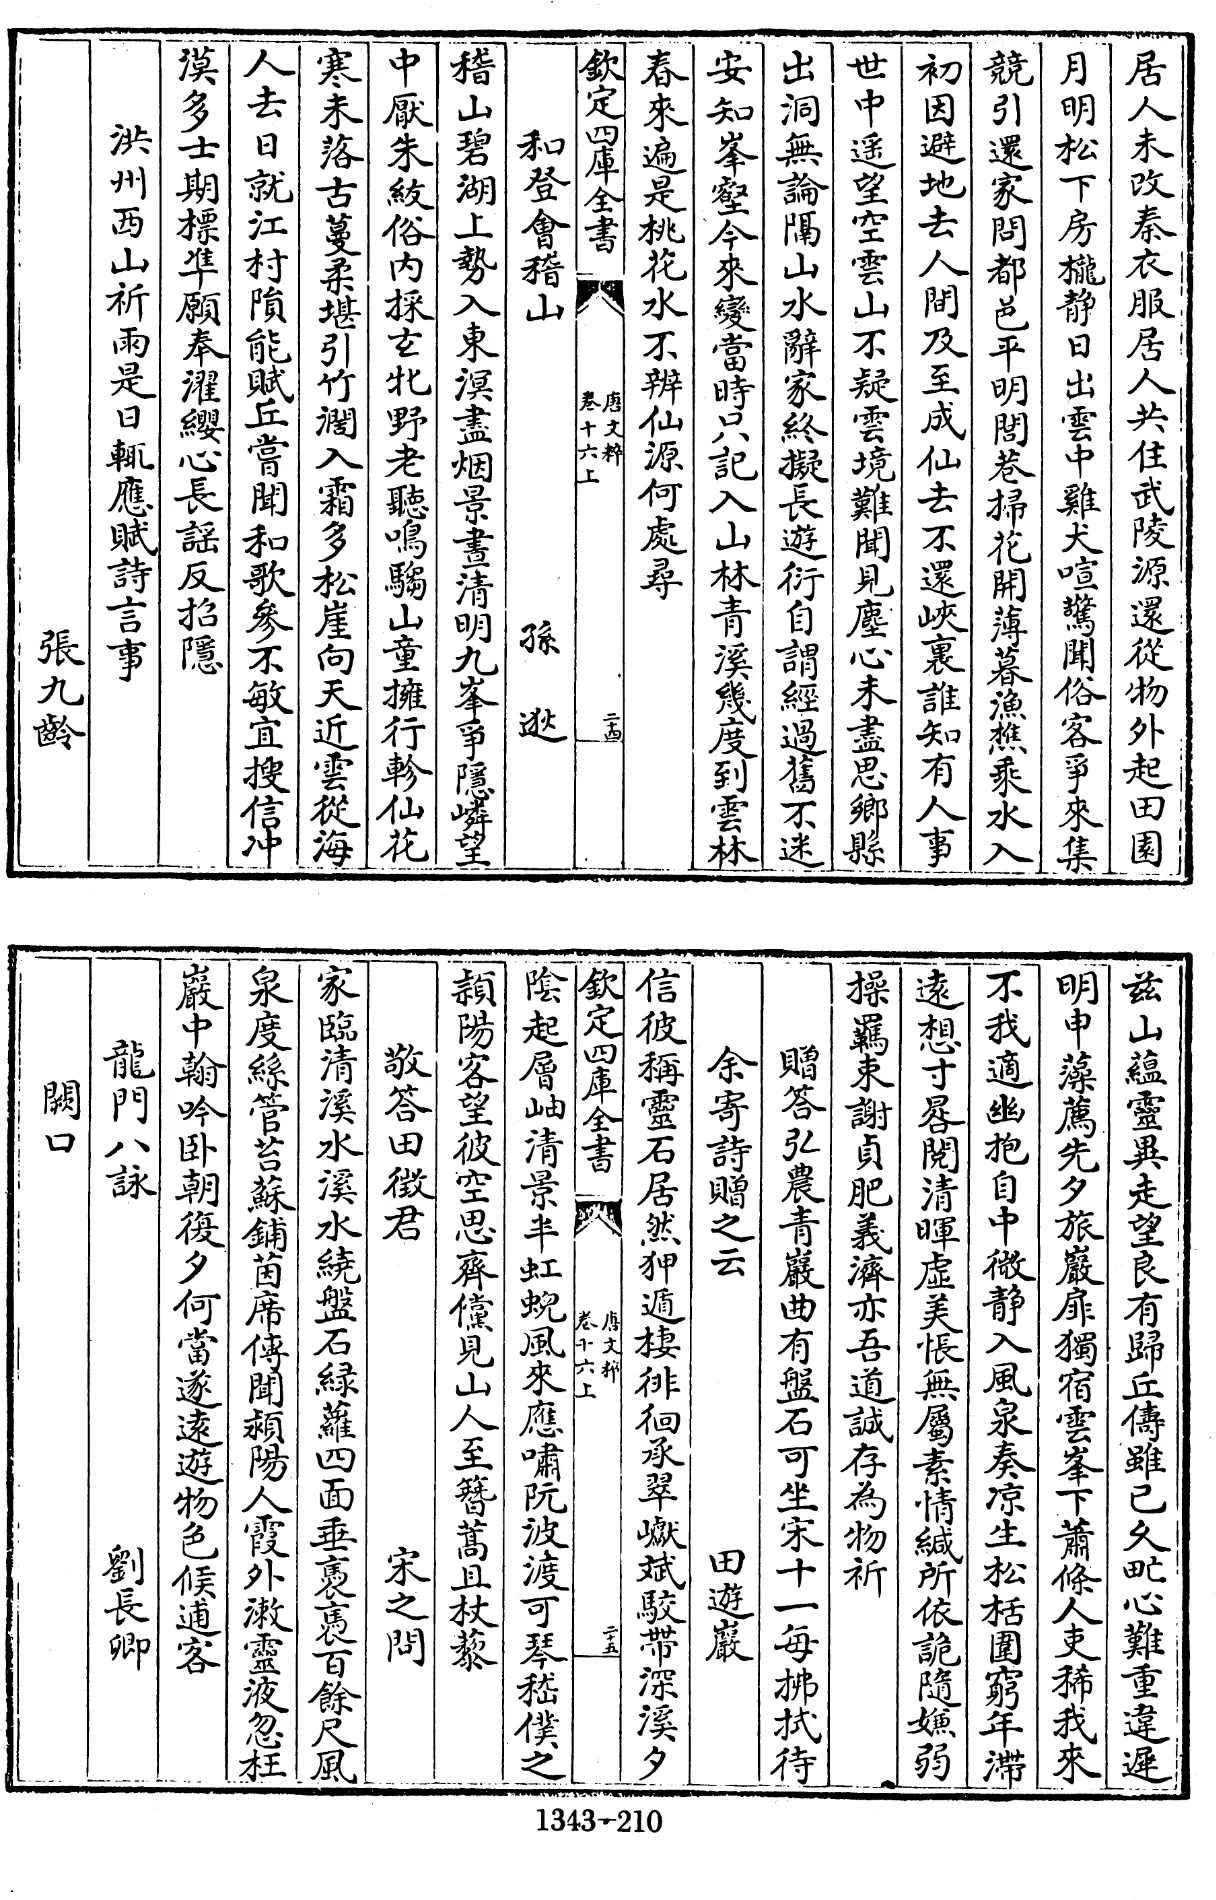 居人未改秦衣服居人共住武陵源還從物外起田園
月明松下房櫳靜日出雲中雞犬喧驚聞俗客爭來集
競引還家問都邑平明閭巷掃花開薄暮漁樵乘水入
初因避地去人間及至成仙去不還峽裏誰知有人事
世中遥望空雲山不疑雲境難聞見塵心未盡思鄉縣
出洞無論隔山水辭家終擬長遊衍自謂經過舊不迷
安知峯壑今來變當時只記入山林青溪幾度到雲林
春來遍是桃花水不辨仙源何處尋
欽定四庫全書
唐文粹
卷十六上
二十四
和登會稽山
孫逖
稽山碧湖上勢入東溟盡烟景晝清明九峯爭隱嶙望
中厭朱紱俗内採玄牝野老聽鳴騶山童擁行軫仙花
寒未落古蔓柔堪引竹澗入霜多松崖向天近雲從海
人去日就江村隕能賦丘嘗聞和歌參不敏宜搜信冲
漠多士期標準願奉濯纓心長謡反招隱
洪州西山祈雨是日輒應賦詩言事
張九齡
兹山藴靈異走望良有歸丘禱雖已久甿心難重違遲
明申藻薦先夕旅巖扉獨宿雲峯下蕭條人吏稀我來
不我適幽抱自中微静入風泉奏凉生松栝圍窮年滯
遠想寸晷閲清暉虚美悵無屬素情緘所依詭隨嫌弱
操羈束謝貞肥義濟亦吾道誠存為物祈
贈答弘農青巖曲有盤石可坐宋十一每拂拭待
余寄詩贈之云
田遊巖
信彼稱靈石居然狎遁棲徘徊承翠巘斌駮帶深溪夕
欽定四庫全書
唐文粹
卷十六上
二十五
陰起層岫清景半虹蜺風來應嘯阮波渡可琴嵇僕之
潁陽客望彼空思齊儻見山人至簪蒿且杖藜
敬答田徴君
宋之問
家臨清溪水溪水繞盤石緑蘿四面垂裊裊百餘尺風
泉度絲管苔蘇鋪茵席傳聞潁陽人霞外漱靈液忽枉
巖中翰吟卧朝復夕何當遂遠遊物色候逋客
龍門八詠
劉長卿
闕口
1343-210